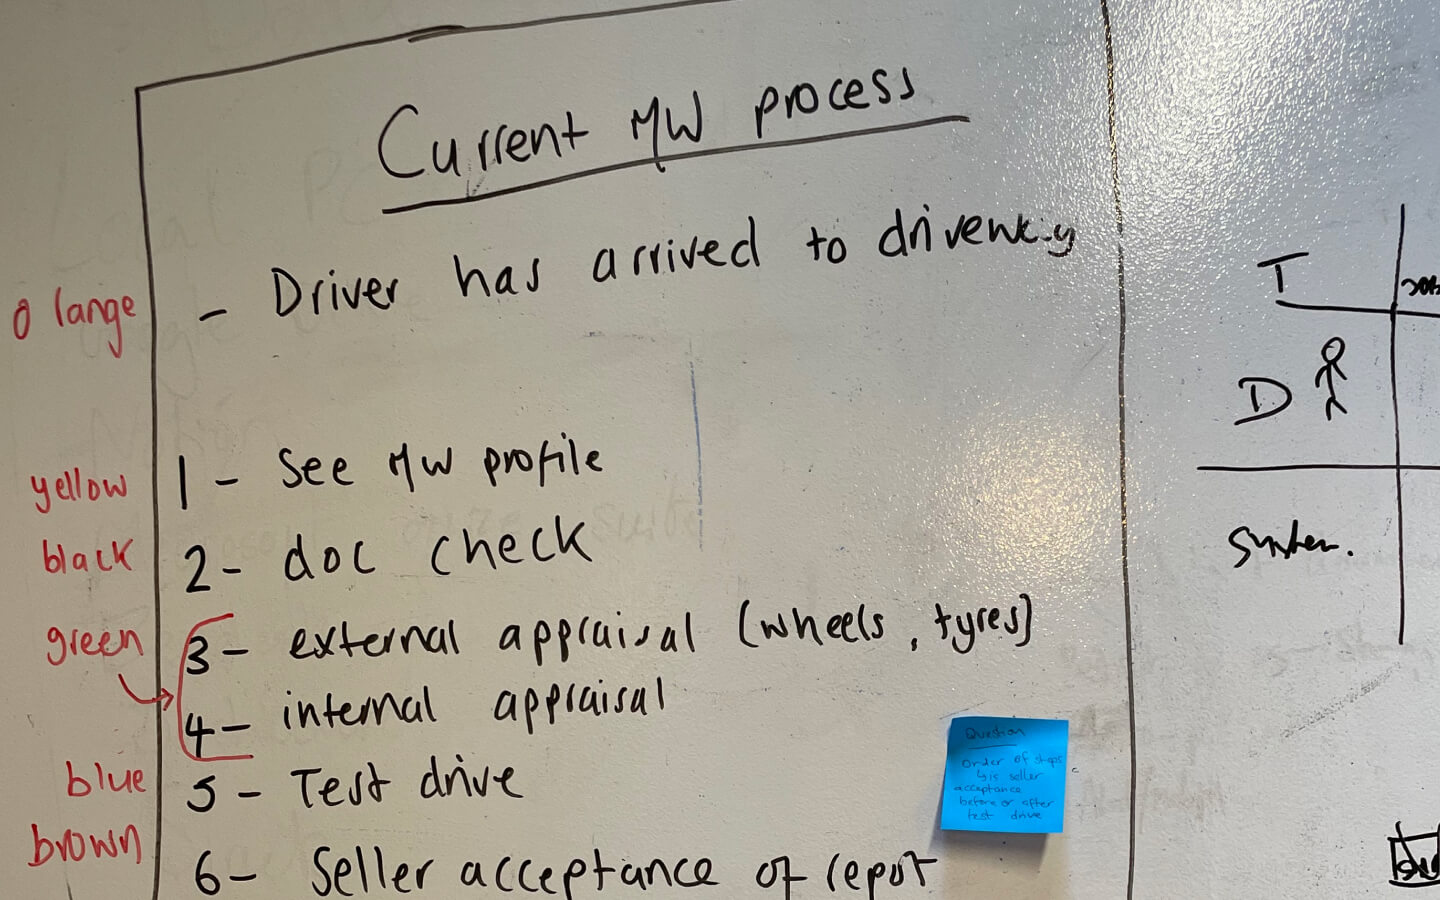 Current MW process
orange - Driver has arrived to driveway
yellow 1 - See MW profile
black 2 - doc check
green 3 - external appraisal (wheels, tyres)
4 - internal appraisal
blue 5 - Test drive
brown 6 - Seller acceptance of repot
Question
Order of steps
↳ is seller
acceptance
before or after
test drive
T
D
System.